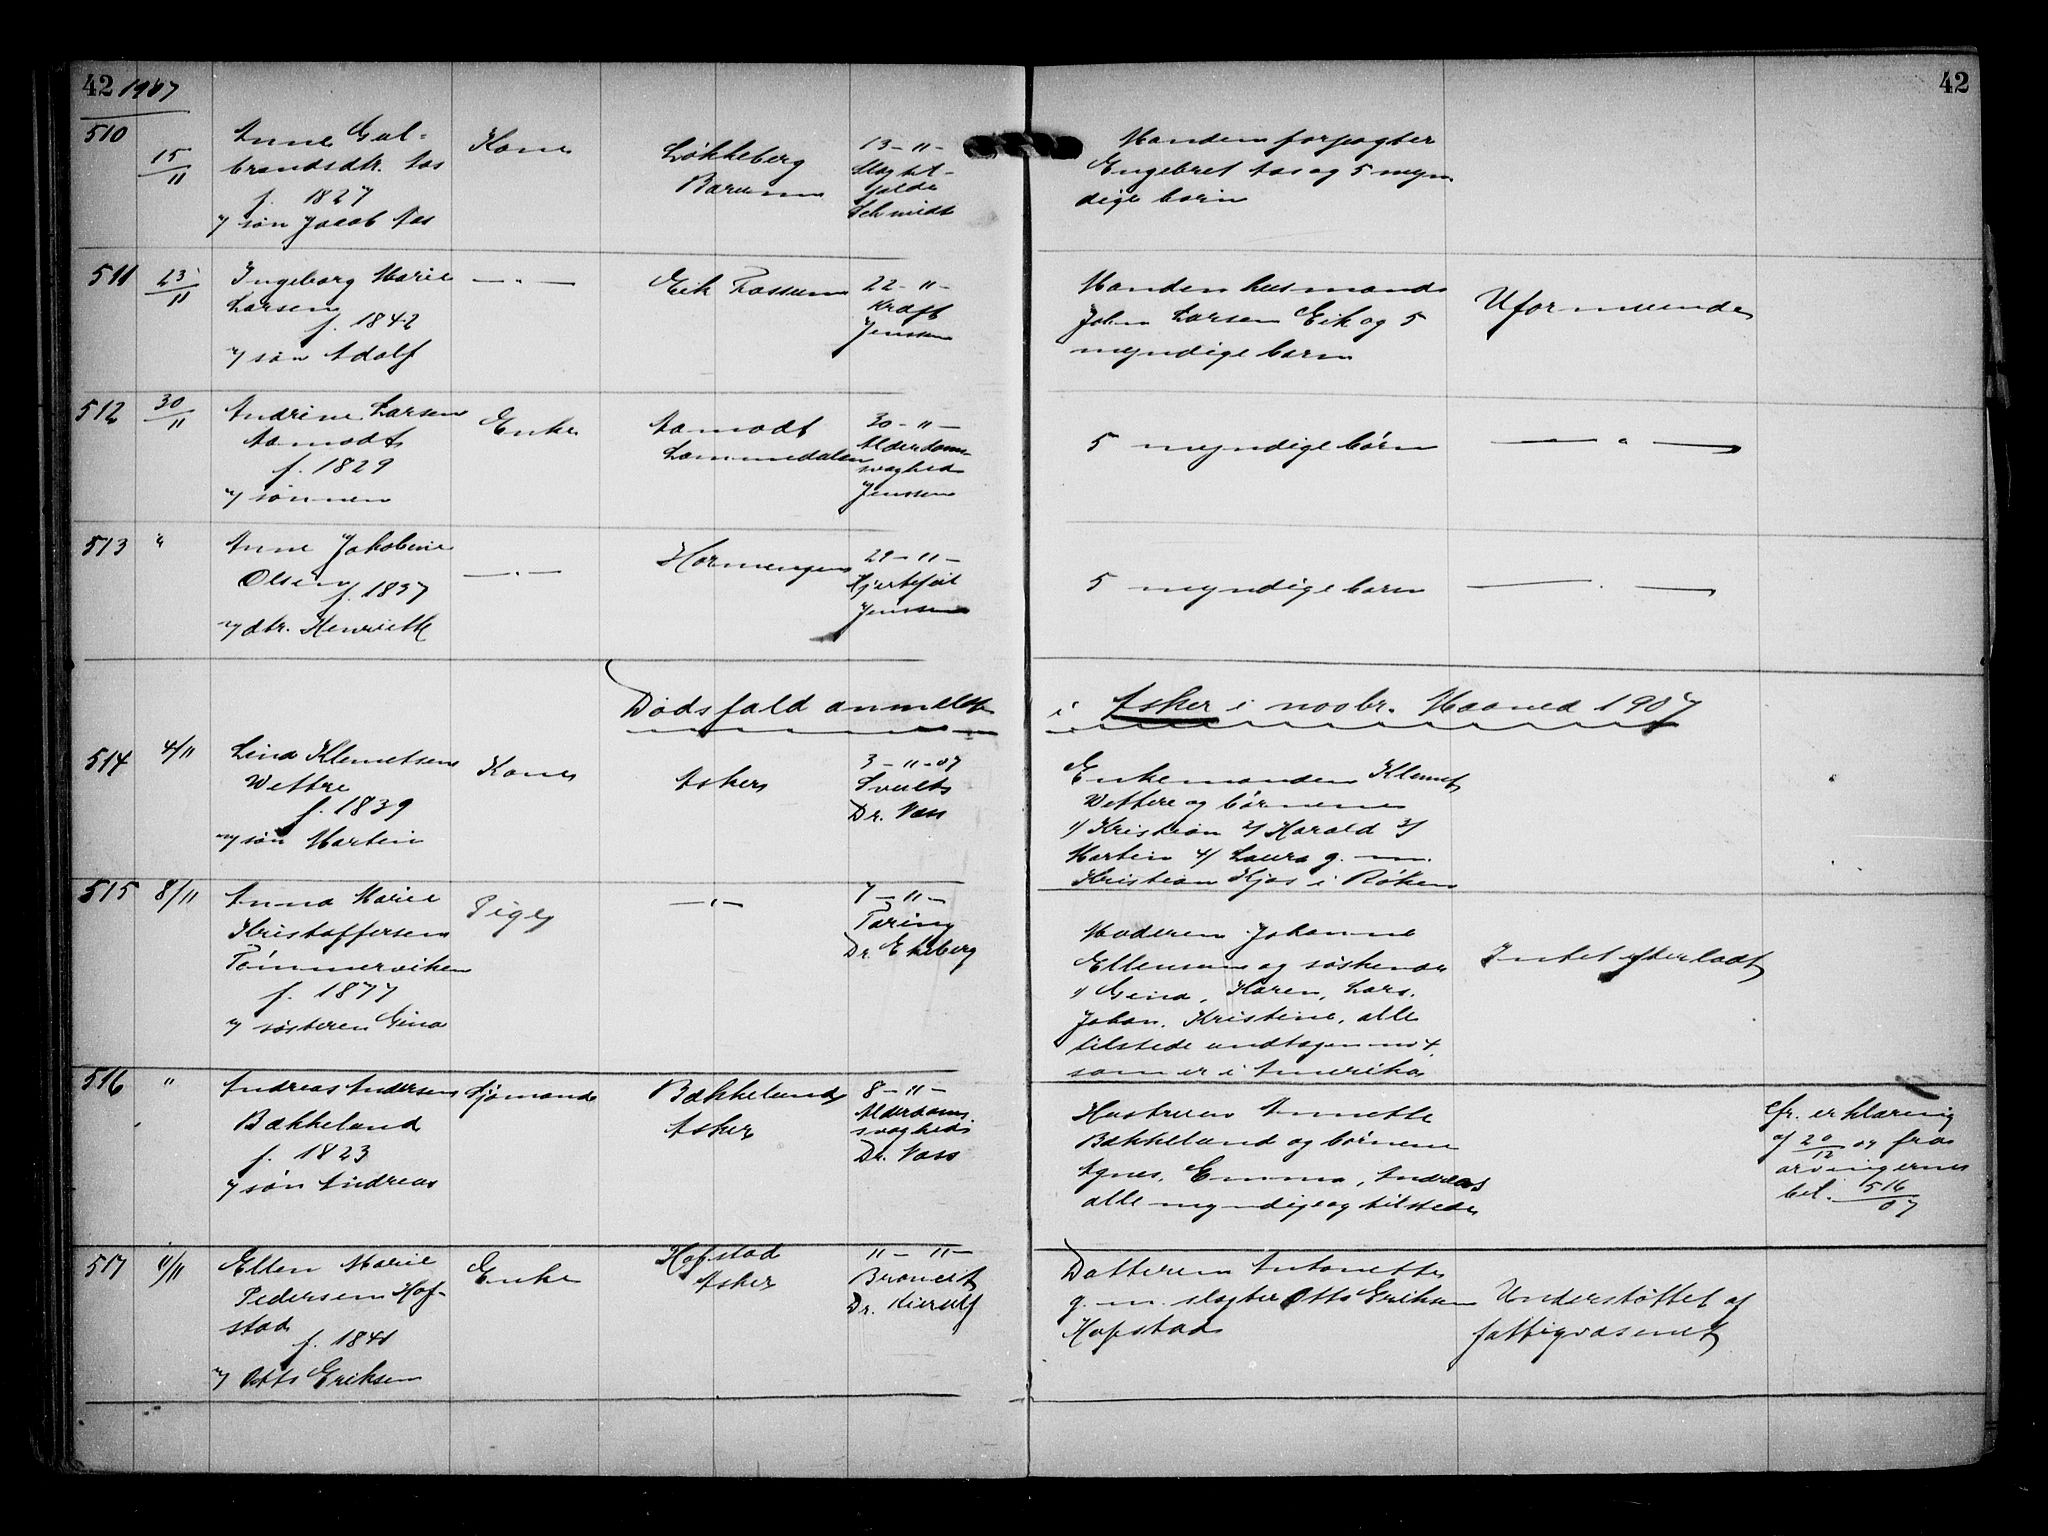 42 1907
42
510
15/11
Anne Gul-
brandsdtr. Aas
f. 1827
v/ søn Jacob Aas
Kone
Løkkeberg
Bærum
13 - 11 -
Schmidt
Manden forpagter
Engebret Aas og 5 myn
dige børn
511
23/11
Ingeborg Marie
Larsen
f. 1842
v/ søn Adolf
— " —
Eik Fossum
22 - 11 -
Kræft
Jenssen
Manden husmand
Johan Larsen Eik og 5
myndige børn
Uformuende
512
30/11
Andrine Larsen
Aamodt
f. 1829
v/ sønnen
Enke
Aamodt
Lommedalen
30 - 11 -
Alderdoms-
svaghed
Jenssen
5 myndige børn
— " —
513
"
Anne Jakobine
Olsen f. 1837
v/ dtr. Henriette
— " —
Hornengen
29 - 11 -
Hjertefeil
Jenssen
5 myndige børn
— " —
Dødsfald anmeldte
i Asker i novbr. Maaned 1907
514
4/11
Lina Klemetsen
Wettre
f. 1839
v/ søn Martin
Kone
Asker
3 - 11 - 07
Svulst
Dr. Næss
Enkemanden Klemet
Wettre og børnene
1/ Kristian 2/ Harald 3/
Martin 4/ Laura g. m.
Kristian Kjos i Røken
515
8/11
Anna Marie
Kristoffersen
Tømmerviken
f. 1877
v/ søsteren Gina
Pige
— " —
7 - 11 -
Tæring
Dr. Ekeberg
Moderen Johanne
Ellensen og søskende
1/ Gina, Karen, Lars,
Johan, Kristine, alle
tilstede undtagen no 4.
som er i Amerika
Intet efterladt
516
"
Andreas Andersen
Bækkelund
f. 1823
v/ søn Andreas
Sjømand
Bækkelund
Asker
8 - 11 -
Alderdoms
svaghed
Dr. Næss
Hustruen Annette
Bækkelund og børnene
Agnes, Emma, Andreas
alle myndige og tilstede
cfr. erklæring
af 20/12 07 fra
arvingerne
bil. 516/07
517
11/11
Ellen Marie
Pedersen Hof-
stad
f. 1841
v/ Otto Eriksen
Enke
Hofstad
Asker
11 - 11 -
Broncit
Dr. Kierulf
Datteren Antonette
g. m. slagter Otto Eriksen
Hofstad
Understøttet af
fattigvæsenet